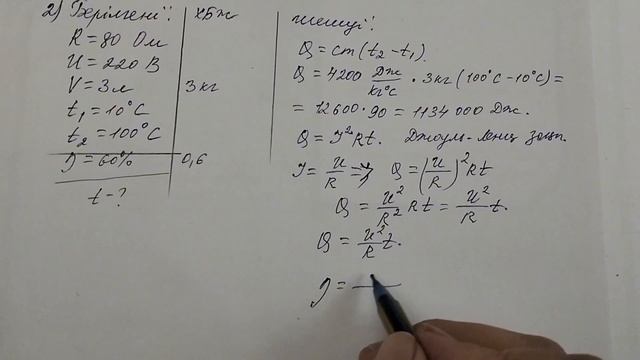 2) Берілгені:
R = 80 Ом
U = 220 В
V = 3л
t₁ = 10°C
t₂ = 100°C
η = 60%
t - ?
ХБЖ
3 кг
0,6
Шешуі:
Q = cm(t₂ - t₁).
Q = 4200 Дж/кг°C · 3 кг (100°C - 10°C) =
= 12600 · 90 = 1134 000 Дж.
Q = I²Rt. Джоуль-Ленц заңы.
I = U/R => Q = (U/R)² Rt
Q = U²/R² Rt = U²/R t.
Q = U²/R t.
η =